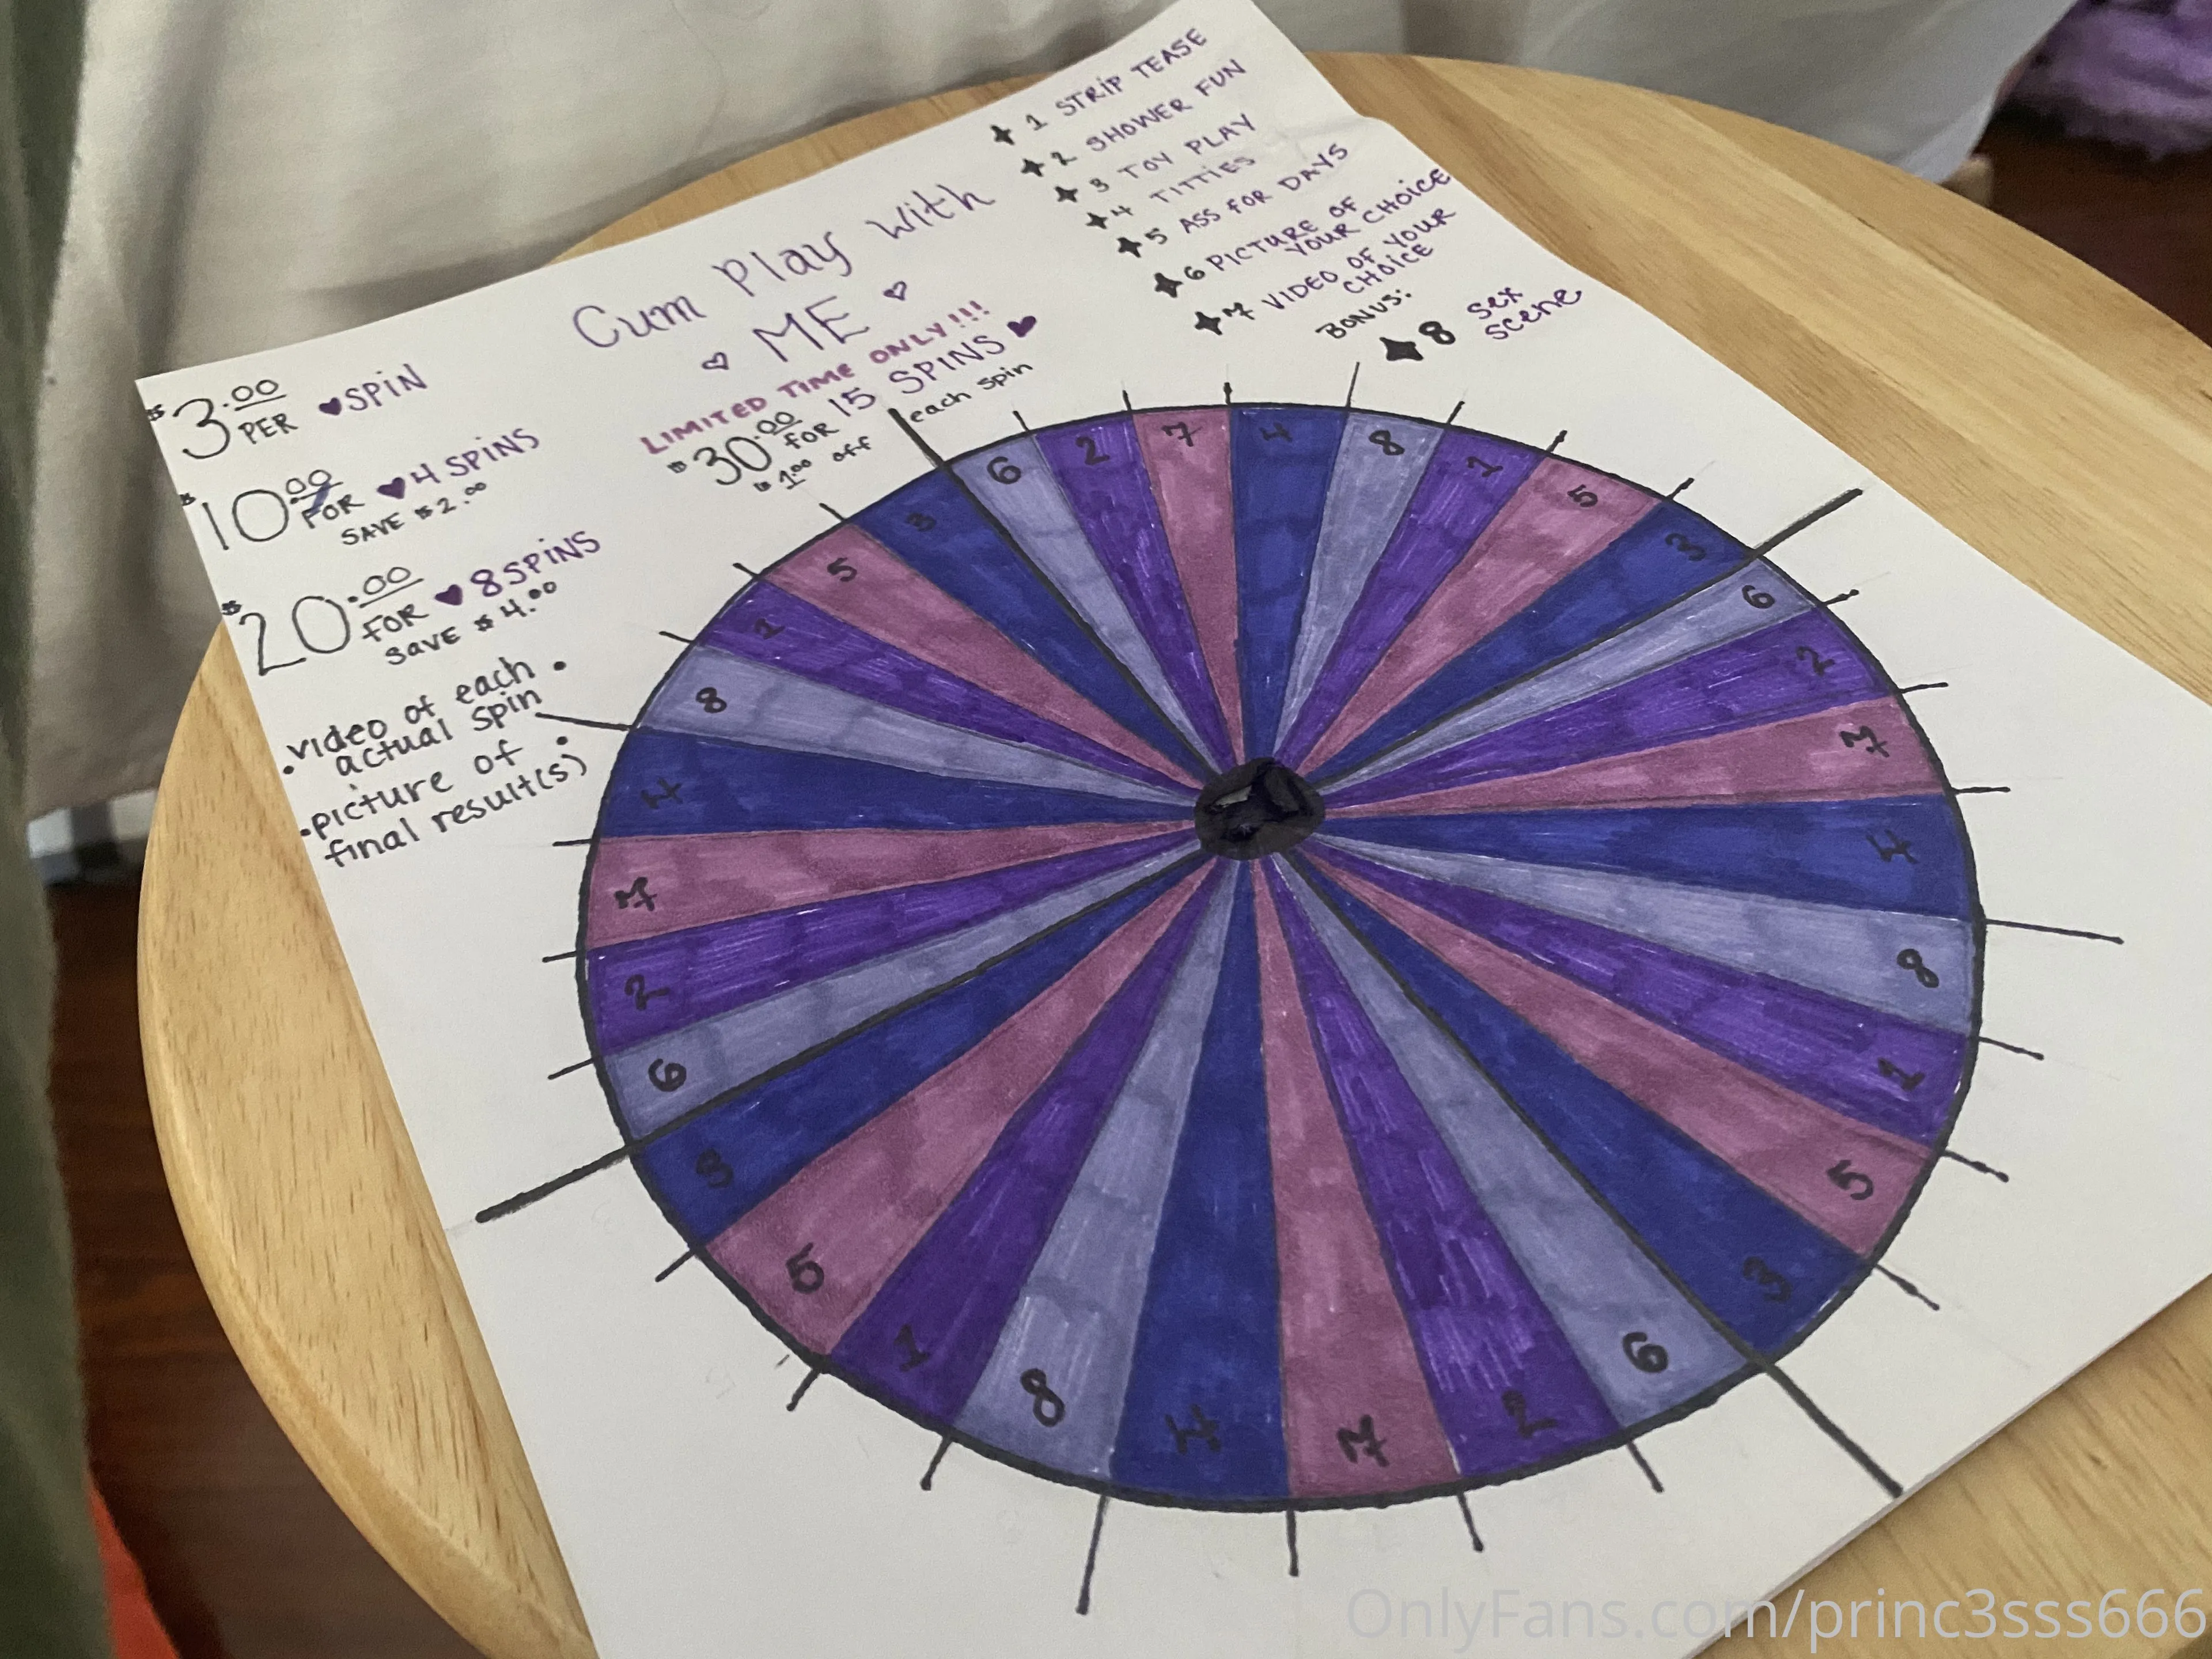 Cum Play With
ME
LIMITED TIME ONLY!!!
$30.00 FOR 15 SPINS
$1.00 off each spin
$3.00 PER SPIN
$10.00 FOR 4 SPINS
SAVE $2.00
$20.00 FOR 8 SPINS
SAVE $4.00
• video of each •
actual spin
• picture of •
final result(s)
1 STRIP TEASE
2 SHOWER FUN
3 TOY PLAY
4 TITTIES
5 ASS FOR DAYS
6 PICTURE OF
YOUR CHOICE
7 VIDEO OF YOUR
CHOICE
BONUS:
8 SEX
SCENE
6
2
7
4
8
1
5
3
6
2
7
4
8
1
5
3
6
2
7
4
8
1
5
3
6
2
7
4
8
1
5
3
OnlyFans.com/princ3sss666